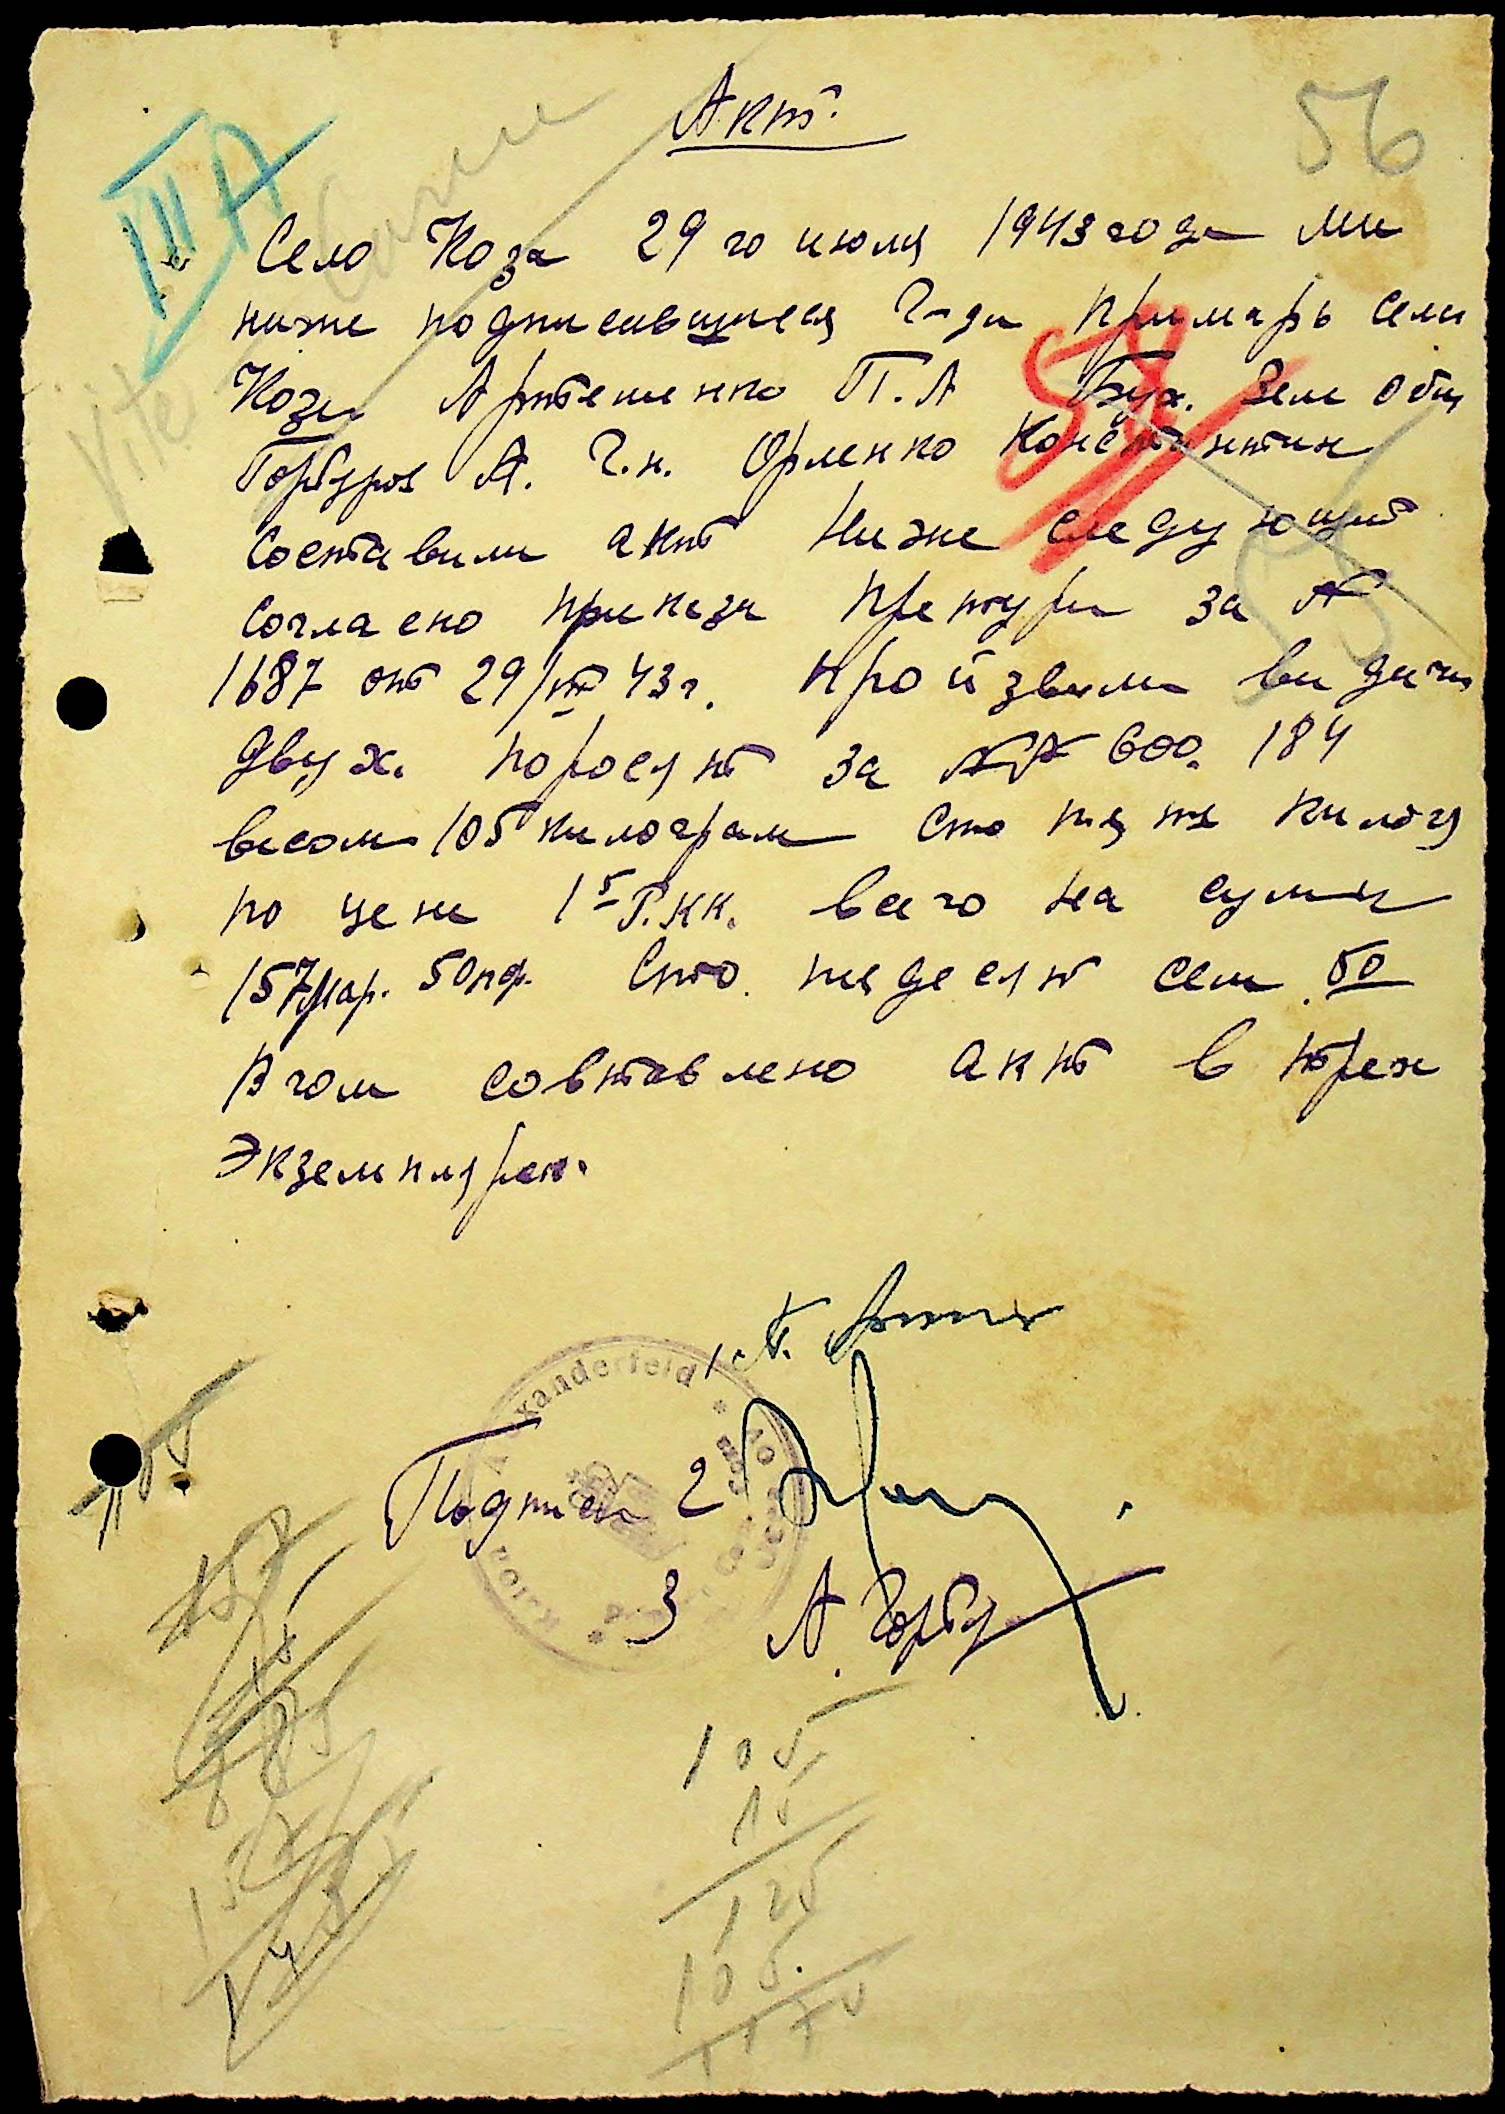 Акт.
56
III А
Село Коза 29 го июля 1943 года ми
ниже подписавщиеся Г-да Примарь села
Коза Артеменко П.А Бух. Зем общ
Горбуров А. Г.н. Орленко Константин
Составили акт Ниже следующит
Согласно приказа Претури за №
1687 от 29/VII 43 г. пройзвили видачи
двух. поросят за №№ 600. 184
весом 105 килограм Сто пять килогр
по цене 1 5 Р.КК. всего на сумму
157 мар. 50 пф. Сто пядесят сем 50
В чом совтавлено акт в трех
Экземплярах.
1
Подписи 2
3 А. Горбу
xanderfeld
105
15